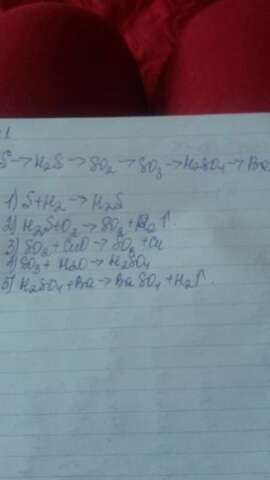 1
S → H₂S → SO₂ → SO₃ → H₂SO₄ → Ba
1) S + H₂ → H₂S
2) H₂S + O₂ → SO₂ + H₂↑.
3) SO₂ + CuO → SO₃ + Cu
4) SO₃ + H₂O → H₂SO₄
5) H₂SO₄ + Ba → BaSO₄ + H₂↑.